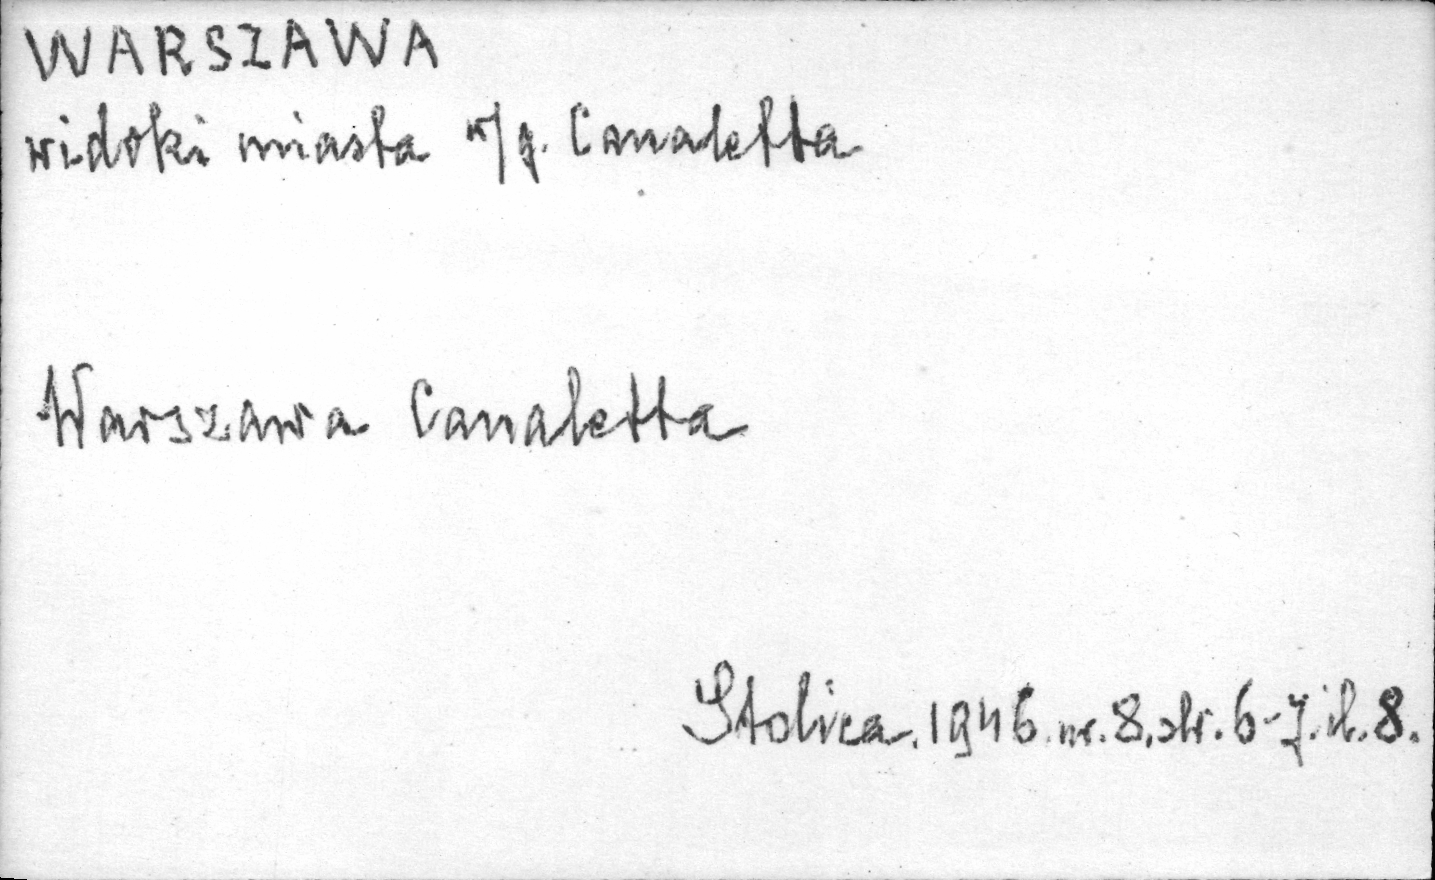 WARSZAWA
widoki miasta w/g. Canaletta
Warszawa Canaletta
Stolica. 1946. nr. 8. str. 6-7. il. 8.